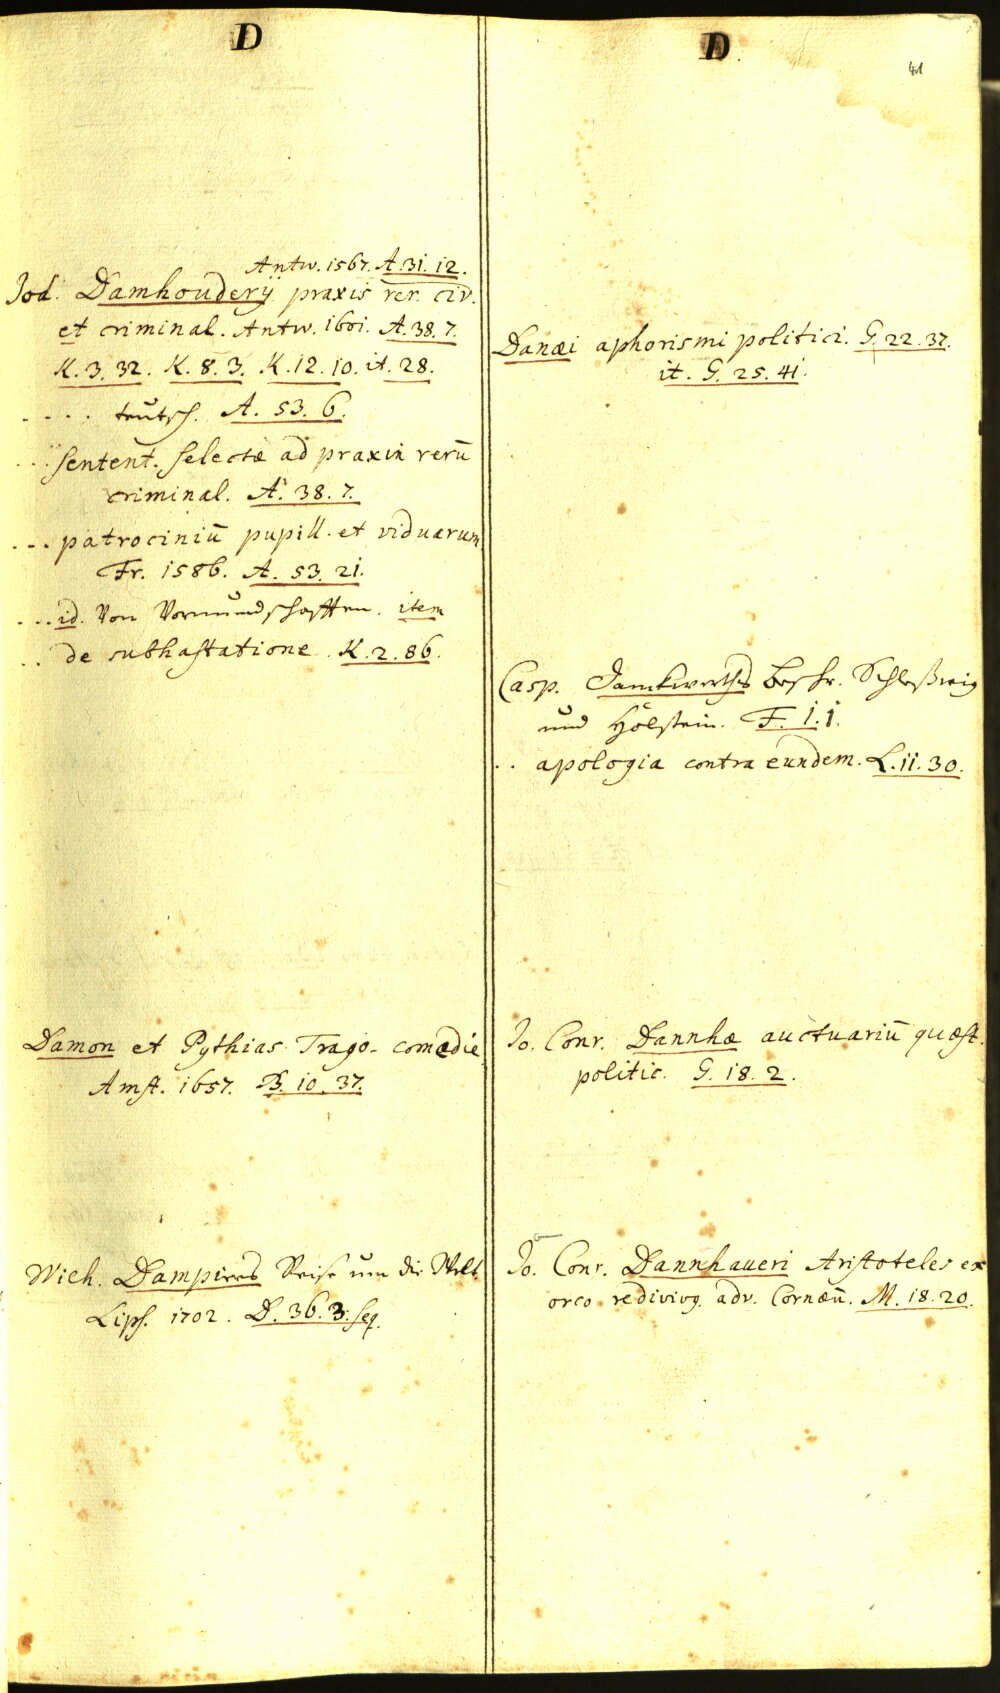 D
Antw. 1567. A. 31. 12.
Jod. Damhouderÿ praxis rer. civ.
et criminal. Antw. 1601. A. 38. 7.
K. 3. 32. K. 8. 3. K. 12. 10. it. 28.
.... teutsch. A. 53. 6.
... sentent. selectæ ad praxin rerū
criminal. A. 38. 7.
... patrociniū pupill. et viduarum
Fr. 1586. A. 53. 21.
... id. Von Vormundschafften. item
.. de subhastatione. K. 2. 86.
Damon et Pythias Trago-comœdie
Amst. 1657. B. 10. 37.
Wilh. Dampiers Reise um die Welt
Lips. 1702. D. 36. 3. seq.
D.
41
Danæi aphorismi politici. G. 22. 37.
it. G. 25. 41.
Casp. Danckwerths Beschr. Schleßwig
und Holstein. F. 1. 1.
.. apologia contra eundem. L. 11. 30.
Jo. Conr. Dannhæ auctuariū quæst.
politic. G. 18. 2.
Jo. Conr. Dannhaueri Aristoteles ex
orco redivivg. adv. Cornæū. M. 18. 20.